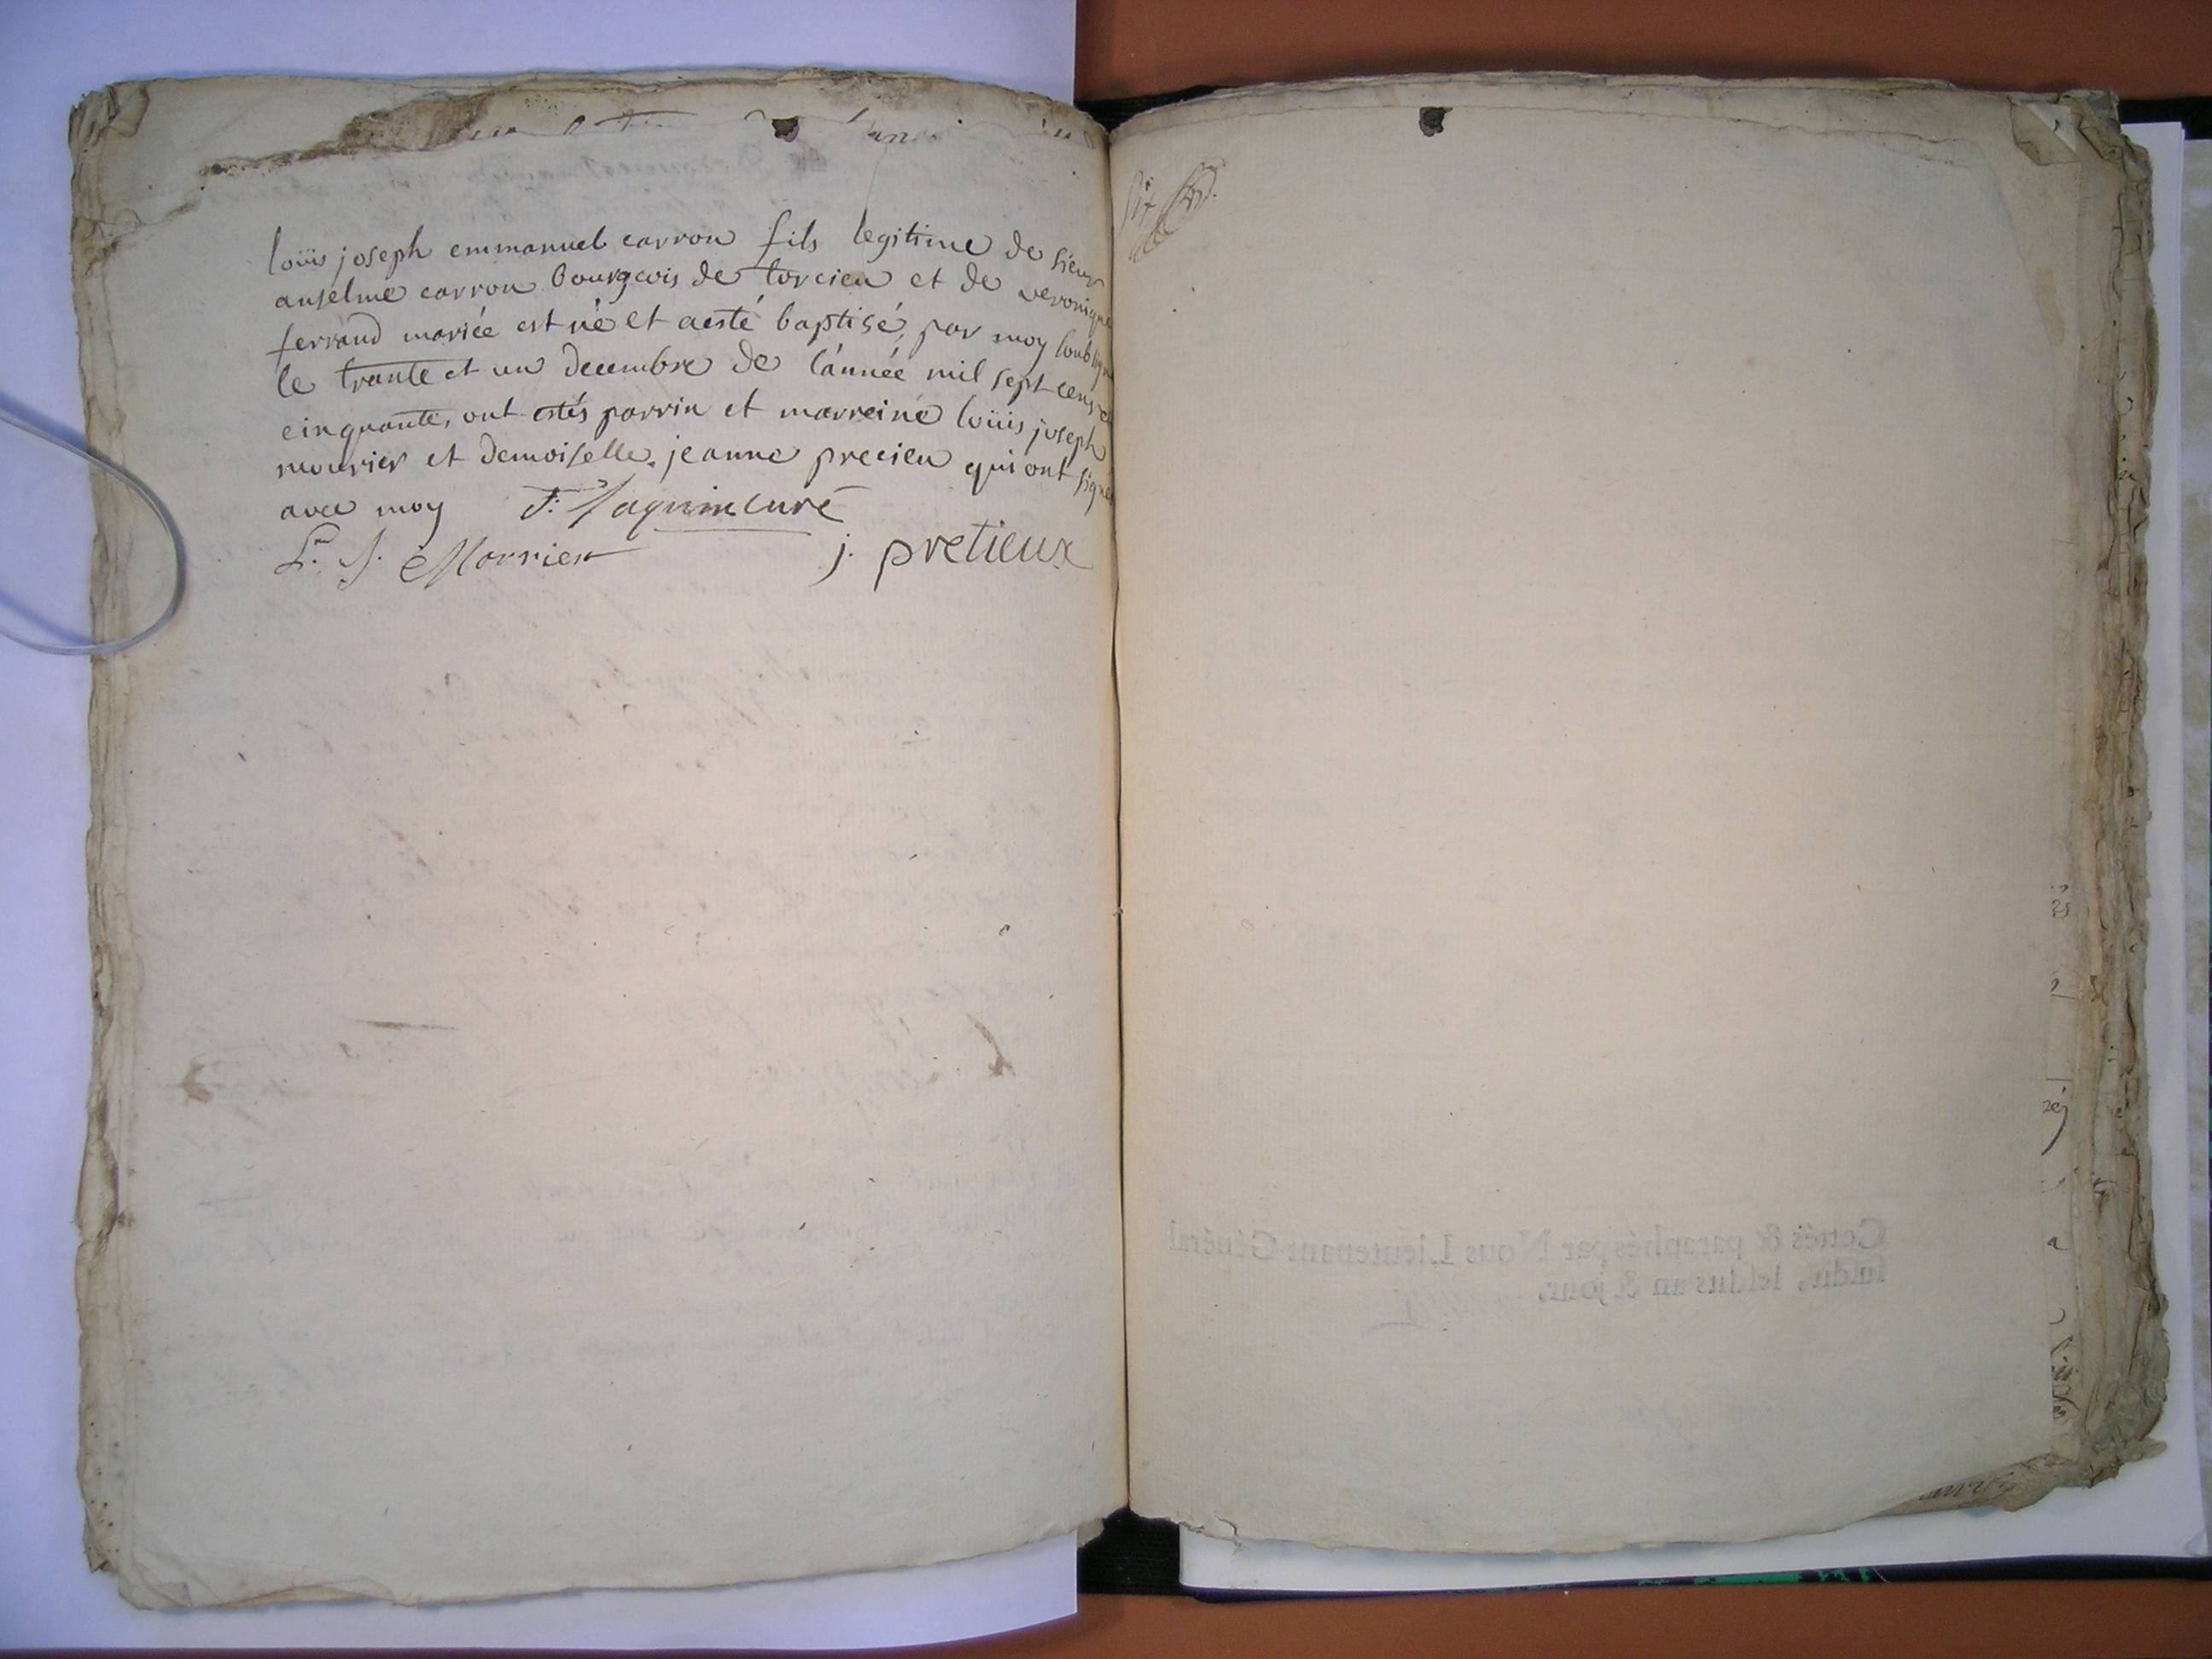 loüis joseph emmanuel carron fils legitime de sieur
anselme carron bourgeois de torcieu et de veronique
ferrand mariée est né et aesté baptisé, par moy soubsigné
le trante et un decembre de l'année mil sept cens et
cinquante, ont estés parrin et marreine loüis joseph
mourier et demoiselle jeanne precieu qui ont signé
avec moy F. Jaquin curé
L. J. Morrier j. pretieux
six
Cottés & paraphés par Nous Lieutenant Général
susdit, lesdits an & jour.